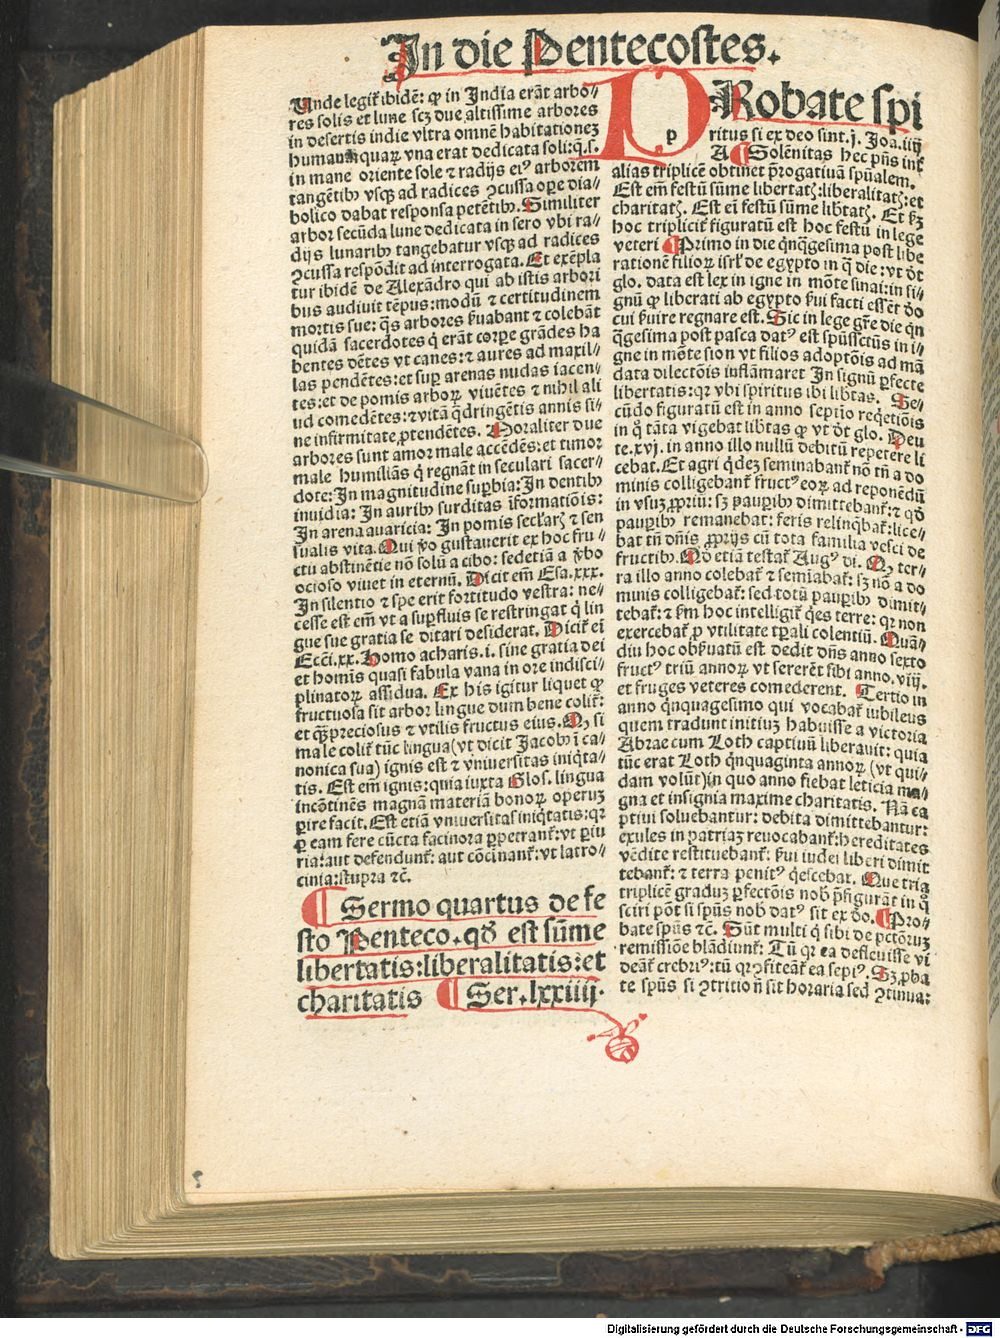 In die Pentecostes.
Unde legit᷑ ibidē: ꝙ in India erāt arbo⸗
res solis et lune scꝫ due altissime arbores
in desertis indie vltra omnē habitationeꝫ
humanā quaꝝ vna erat dedicata soli: q̄.s.
in mane oriente sole ⁊ radijs eiꝰ arborem
tangētibꝰ vsqꝫ ad radices ꝯcussa oꝑe dia⸗
bolico dabat responsa petētibꝰ. Similiter
arbor secūda lune dedicata in sero vbi ra⸗
dijs lunaribꝰ tangebatur vsqꝫ ad radices
ꝯcussa respōdit ad interrogata. Et exēpla
tur ibidē de Alexādro qui ab istis arbori
bus audiuit tēpus: modū ⁊ certitudinem
mortis sue: q̄s arbores ẜuabant ⁊ colebāt
quidā sacerdotes q̇ erāt corꝑe grādes ha
bentes dētes vt canes: ⁊ aures ad maxil⸗
las pendētes: et suꝑ arenas nudas iacen⸗
tes: et de pomis arboꝝ viuētes ⁊ nihil ali
ud comedētes: ⁊ vitā q̇dringētis annis si⸗
ne infirmitate ꝓtendētes. Moraliter due
arbores sunt amor male accēdēs: et timor
male humiliās q̇ regnāt in seculari sacer⸗
dote: In magnitudine suꝑbia: In dentibꝰ
inuidia: In auribꝰ surditas īformatiōis:
In arena auaricia: In pomis sectaꝝ ⁊ sen
sualis vita. Qui ꝟo gustauerit ex hoc fru⸗
ctu abstinētie nō solū a cibo: sed etiā a ꝟbo
ocioso viuet in eternū. Dicit em̄ Esa.xxx.
In silentio ⁊ spe erit fortitudo vestra: ne⸗
cesse est em̄ vt a suꝑfluis se restringat q̇ lin
gue sue gratia se ditari desiderat. Dicit᷑ ei
Ecci.xx. Homo acharis.i. sine gratia dei
et homīs quasi fabula vana in ore indisci⸗
plinatoꝝ assidua. Ex his igitur liquet ꝙ
fructuosa sit arbor lingue dum bene colit᷑:
et qꝫ preciosus ⁊ vtilis fructus eius. Qꝫ si
male colit᷑ tūc lingua (vt dicit Jacobꝰ ī ca⸗
nonica sua) ignis est ⁊ vniuersitas iniq̇ta⸗
tis. Est em̄ ignis: quia iuxta Glos. lingua
incōtinēs magnā materiā bonoꝝ operuꝫ
ꝑire facit. Est etiā vniuersitas iniq̇tatis: qꝛ
ꝑ eam fere cūcta facinora ꝑpetrant᷑: vt ꝑiu
ria: aut defendunt᷑: aut cōcinant᷑: vt latro⸗
cinia: stupra ⁊c̄.
¶ Sermo quartus de fe
sto Penteco. qd̄ est sūme
libertatis: liberalitatis: et
charitatis ¶ Ser. lxxiiij.
PRobate spi
p
ritus si ex deo sint.j. Joa.iiij
A ¶ Solēnitas hec p̄ns int᷑
alias triplicē obtinet p̄rogatiuā spūalem.
Est em̄ festū sūme libertatꝭ: liberalitatꝭ: et
charitatꝭ. Est ei festū sūme libtatꝭ. Et ẜꝫ
hoc triplicit᷑ figuratū est hoc festū in lege
veteri ¶ Primo in die q̇nq̇gesima post libe
rationē filioꝝ isrl̄ de egypto in q̄ die: vt dt̄
glo. data est lex in igne in mōte sinai: in si⸗
gnū ꝙ liberati ab egypto ẜui facti essēt dō
cui ẜuire regnare est. Sic in lege gr̄e die q̇n
q̇gesima post pasca datꝰ est spūssctūs in i⸗
gne in mōte sion vt filios adoptōis ad mā
data dilectōis inflāmaret In signū ꝑfecte
libertatis: qꝛ vbi spiritus ibi libtas. Se⸗
cūdo figuratū est in anno septīo reqetiōis
in q̄ tāta vigebat libtas ꝙ vt dt̄ glo. Deu
te.xvj. in anno illo nullū debitū repetere li
cebat. Et agri q̇deꝫ seminabant᷑ nō tn̄ a do
minis colligebant᷑ fructꝰ eoꝝ ad reponēdū
in vsuꝫ ꝓpriū: sꝫ pauꝑibꝰ dimittebant᷑: ⁊ qd̄
pauꝑibꝰ remanebat: feris relinq̇bat᷑: lice⸗
bat tn̄ dn̄is ꝓprijs cū tota familia vesci de
fructibꝰ. Qd̄ etiā testat᷑ Augꝰ di. Qꝫ ter⸗
ra illo anno colebat᷑ ⁊ semīabat᷑: sꝫ nō a do
minis colligebat᷑: sed totū pauꝑibꝰ dimit⸗
tebat᷑: ⁊ ẜm hoc intelligit᷑ q̇es terre: qꝛ non
exercebat᷑ ꝓ vtilitate tꝑali colentiū. Quā⸗
diu hoc obẜuatū est dedit dn̄s anno sexto
fructꝰ triū annoꝝ vt sererēt sibi anno.viij.
et fruges veteres comederent. Tertio in
anno q̇nquagesimo qui vocabat᷑ iubileus
quem tradunt initiuꝫ habuisse a victoria
Abrae cum Loth captiuū liberauit: quia
tūc erat Loth q̇nquaginta annoꝝ (vt qui⸗
dam volūt) in quo anno fiebat leticia ma⸗
gna et insignia maxime charitatis. Nā ca
ptiui soluebantur: debita dimittebantur:
exules in patriaꝫ reuocabant᷑: hereditates
vēdite restituebant᷑: ẜui iudei liberi dimit
tebant᷑: ⁊ terra penitꝰ q̇escebat. Que tria
triplicē graduꝫ ꝑfectōis nob̄ p̄figurāt in q̄
sciri pōt si spūs nob̄ datꝰ sit ex dō. ¶ Pro⸗
bate spūs ⁊c̄. Sūt multi q̇ sibi de pctōruꝫ
remissiōe blādiunt᷑: Tū qꝛ ea defleuisse vi
deāt᷑ crebriꝰ: tū qꝛ ꝯfiteāt᷑ ea sepiꝰ. Sꝫ ꝓba
te spūs si ꝯtritio n̄ sit horaria sed ꝯtinua:
Digitalisierung gefördert durch die Deutsche Forschungsgemeinschaft - DFG